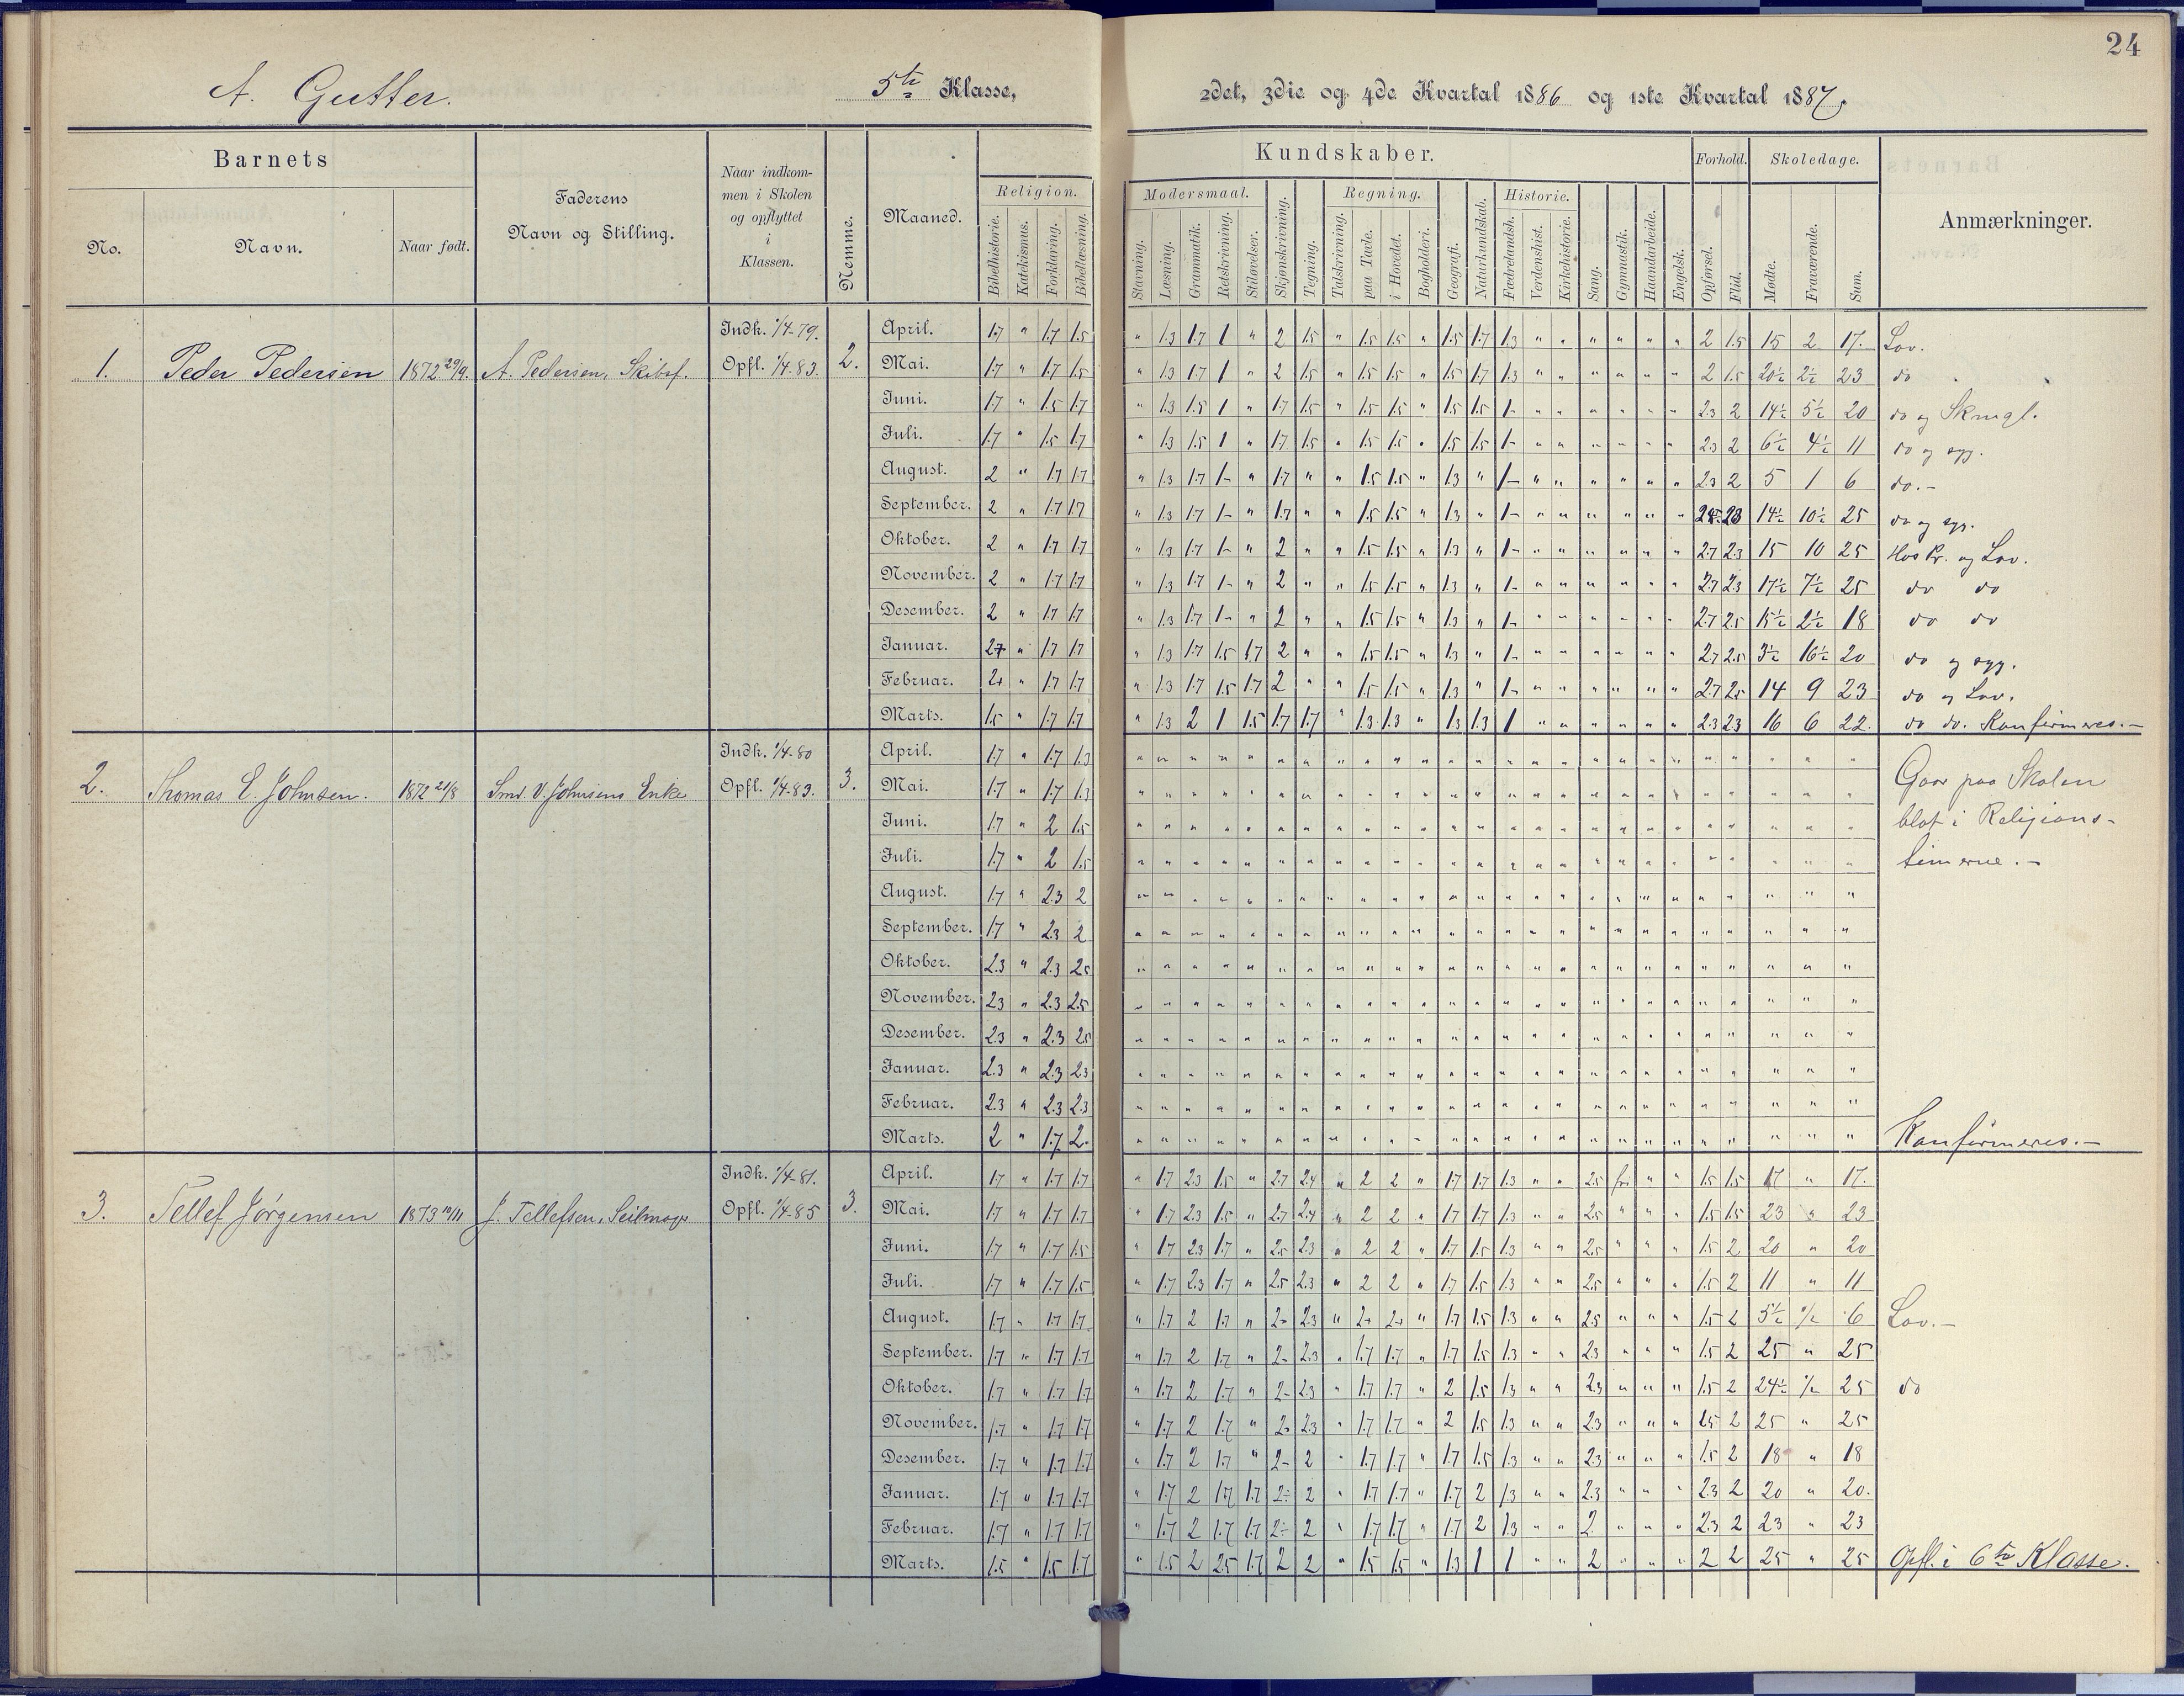 24
A. Gutter. 5te Klasse, 2det, 3die og 4de Kvartal 1886 og 1ste Kvartal 1887.
Barnets
No. Navn. Naar født.
Faderens Navn og Stilling.
Naar indkommen i Skolen og opflyttet i Klassen.
Nemme.
Maaned.
Kundskaber.
Religion.
Bibelhistorie. Katekismus. Forklaring. Bibellæsning.
Modersmaal.
Stavning. Læsning. Grammatik. Retskrivning. Stiløvelser.
Skjønskrivning. Tegning.
Regning.
Talskrivning. paa Tavle. i Hovedet. Bogholderi.
Geografi. Naturkundskab.
Historie.
Fædrelandsh. Verdenshist. Kirkehistorie.
Sang. Gymnastik. Haandarbeide. Engelsk.
Forhold.
Opførsel. Flid.
Skoledage.
Mødte. Fraværende. Sum.
Anmærkninger.
1. Peder Pedersen 1872 29/9. A. Pedersen, Skibsf. Indk. 1/4-79. Opfl. 1/4-83. 2.
April. 1.7 " 1.7 1.5 " 1.3 1.7 1 " 2 1.5 " 1.5 1.5 " 1.5 1.7 1.3 " " " " " " 2 1.5 15 2 17. Lov.
Mai. 1.7 " 1.7 1.5 " 1.3 1.7 1 " 2 1.5 " 1.5 1.5 " 1.5 1.7 1.3 " " " " " " 2 1.5 20½ 2½ 23 do
Juni. 1.7 " 1.5 1.7 " 1.3 1.5 1 " 1.7 1.5 " 1.5 1.5 " 1.5 1.5 1- " " " " " " 2.3 2 14½ 5½ 20 do og
Juli. 1.7 " 1.5 1.7 " 1.3 1.5 1 " 1.7 1.5 " 1.5 1.5 " 1.5 1.5 1- " " " " " " 2.3 2 6½ 4½ 11 do og syg.
August. 2 " 1.7 1.7 " 1.3 1.7 1- " 1.7 " " 1.5 1.5 " 1.3 " 1- " " " " " " 2.3 2 5 1 6 do.-
September. 2 " 1.7 1.7 " 1.3 1.7 1- " 1.7 " " 1.5 1.5 " 1.3 " 1- " " " " " " 2.3 14½ 10½ 25 do og syg.
Oktober. 2 " 1.7 1.7 " 1.3 1.7 1- " 2 " " 1.5 1.5 " 1.3 " 1- " " " " " " 2.7 2.3 15 10 25 Hos Pr. og Lov.
November. 2 " 1.7 1.7 " 1.3 1.7 1- " 2 " " 1.5 1.5 " 1.3 " 1- " " " " " " 2.7 2.3 17½ 7½ 25 do do
Desember. 2 " 1.7 1.7 " 1.3 1.7 1- " 2 " " 1.5 1.5 " 1.3 " 1- " " " " " " 2.7 2.5 15½ 2½ 18 do do
Januar. " 1.7 1.7 " 1.3 1.7 1.5 1.7 2 " " 1.5 1.5 " 1.3 " 1- " " " " " " 2.7 2.5 3½ 16½ 20 do og syg.
Februar. 2+ " 1.7 1.7 " 1.3 1.7 1.5 1.7 2 " " 1.5 1.5 " 1.3 " 1- " " " " " " 2.7 2.5 14 9 23 do og Lov.
Marts. 1.5 " 1.7 1.7 " 1.3 2 1 1.5 1.7 1.7 " 1.3 1.3 " 1.3 1.3 1 " " " " " " 2.3 2.3 16 6 22. do do. Konfirmeres.-
2. Thomas E. Johnsen. 1872 21/8 Smd. V. Johnsens Enke Indk. 1/4-80 Opfl. 1/4-83. 3.
April. 1.7 " 1.7 1.3 Gaar paa Skolen
Mai. 1.7 " 1.7 1.3 blot i Religions-
Juni. 1.7 " 2 1.5 timerne.-
Juli. 1.7 " 2 1.5
August. 1.7 " 2.3 2
September. 1.7 " 2.3 2
Oktober. 2.3 " 2.3 2.5
November. 2.3 " 2.3 2.5
Desember. 2.3 " 2.3 2.5
Januar. 2.3 " 2.3 2.3
Februar. 2.3 " 2.3 2.3
Marts. 2 " 1.7 2. Konfirmeres.-
3. Tellef Jørgensen 1873 10/11 J. Tellefsen, Seilmager Indk. 1/4-81. Opfl. 1/4-85 3.
April. 1.7 " 1.7 1.7 " 1.7 2.3 1.5 " 2.7 2.4 " 2 2 " 1.7 1.7 1.3 " " 2.5 fri " " 1.5 1.5 17 " 17.
Mai. 1.7 " 1.7 1.7 " 1.7 2.3 1.5 " 2.7 2.4 " 2 2 " 1.7 1.7 1.3 " " 2.5 " " " 1.5 1.5 23 " 23
Juni. 1.7 " 1.7 1.5 " 1.7 2.3 1.7 " 2.5 2.3 " 2 2 " 1.7 1.5 1.3 " " 2.5 " " " 1.5 2 20 " 20
Juli. 1.7 " 1.7 1.5 " 1.7 2.3 1.7 " 2.5 2.3 " 2 2 " 1.7 1.5 1.3 " " 2.5 " " " 1.5 2 11 " 11
August. 1.7 " 1.7 1.7 " 1.7 2 1.7 " 2- 2.3 " 2+ 2+ " 1.7 1.5 1.3 " " 2.5 " " " 1.5 2 5½ ½ 6 Lov.-
September. 1.7 " 1.7 1.7 " 1.7 2 1.7 " 2- 2.3 " 1.7 1.7 " 1.7 1.5 1.3 " " 2.3 " " " 1.5 2 25 " 25
Oktober. 1.7 " 1.7 1.7 " 1.7 2 1.7 " 2- 2.3 " 1.7 1.7 " 2 1.5 1.3 " " 2.3 " " " 1.5 2 24½ ½ 25 do
November. 1.7 " 1.7 1.7 " 1.7 2 1.7 " 2- 2.3 " 1.7 1.7 " 2 1.5 1.3 " " 2.3 " " " 2 25 " 25
Desember. 1.7 " 1.7 1.7 " 1.7 2 1.7 " 2- 2 " 1.7 1.7 " 1.7 1.5 1.3 " " 2.3 " " " 1.5 2 18 " 18
Januar. 1.7 " 1.7 1.7 " 1.7 2 1.7 1.7 2- 2 " 1.7 1.7 " 1.7 2 1.3 " " 2.3 " " " 2.3 2 20 " 20.
Februar. 1.7 " 1.7 1.7 " 1.7 2 1.7 1.7 2- 2 " 1.7 1.7 " 1.7 2 1.3 " " 2 " " " 2.3 2 23 " 23
Marts. 1.5 " 1.5 1.7 " 1.5 2 2.5 1.7 2 2 " 1.5 1.5 " 1.3 1 1 " " 2 " " " 2 2 25 " 25 Opfl. i 6te Klasse.